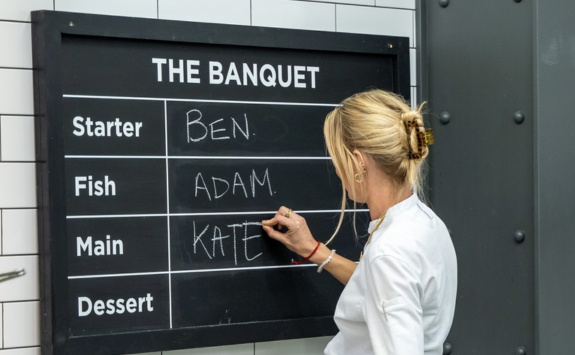 THE BANQUET
Starter BEN.
Fish ADAM.
Main KATE
Dessert